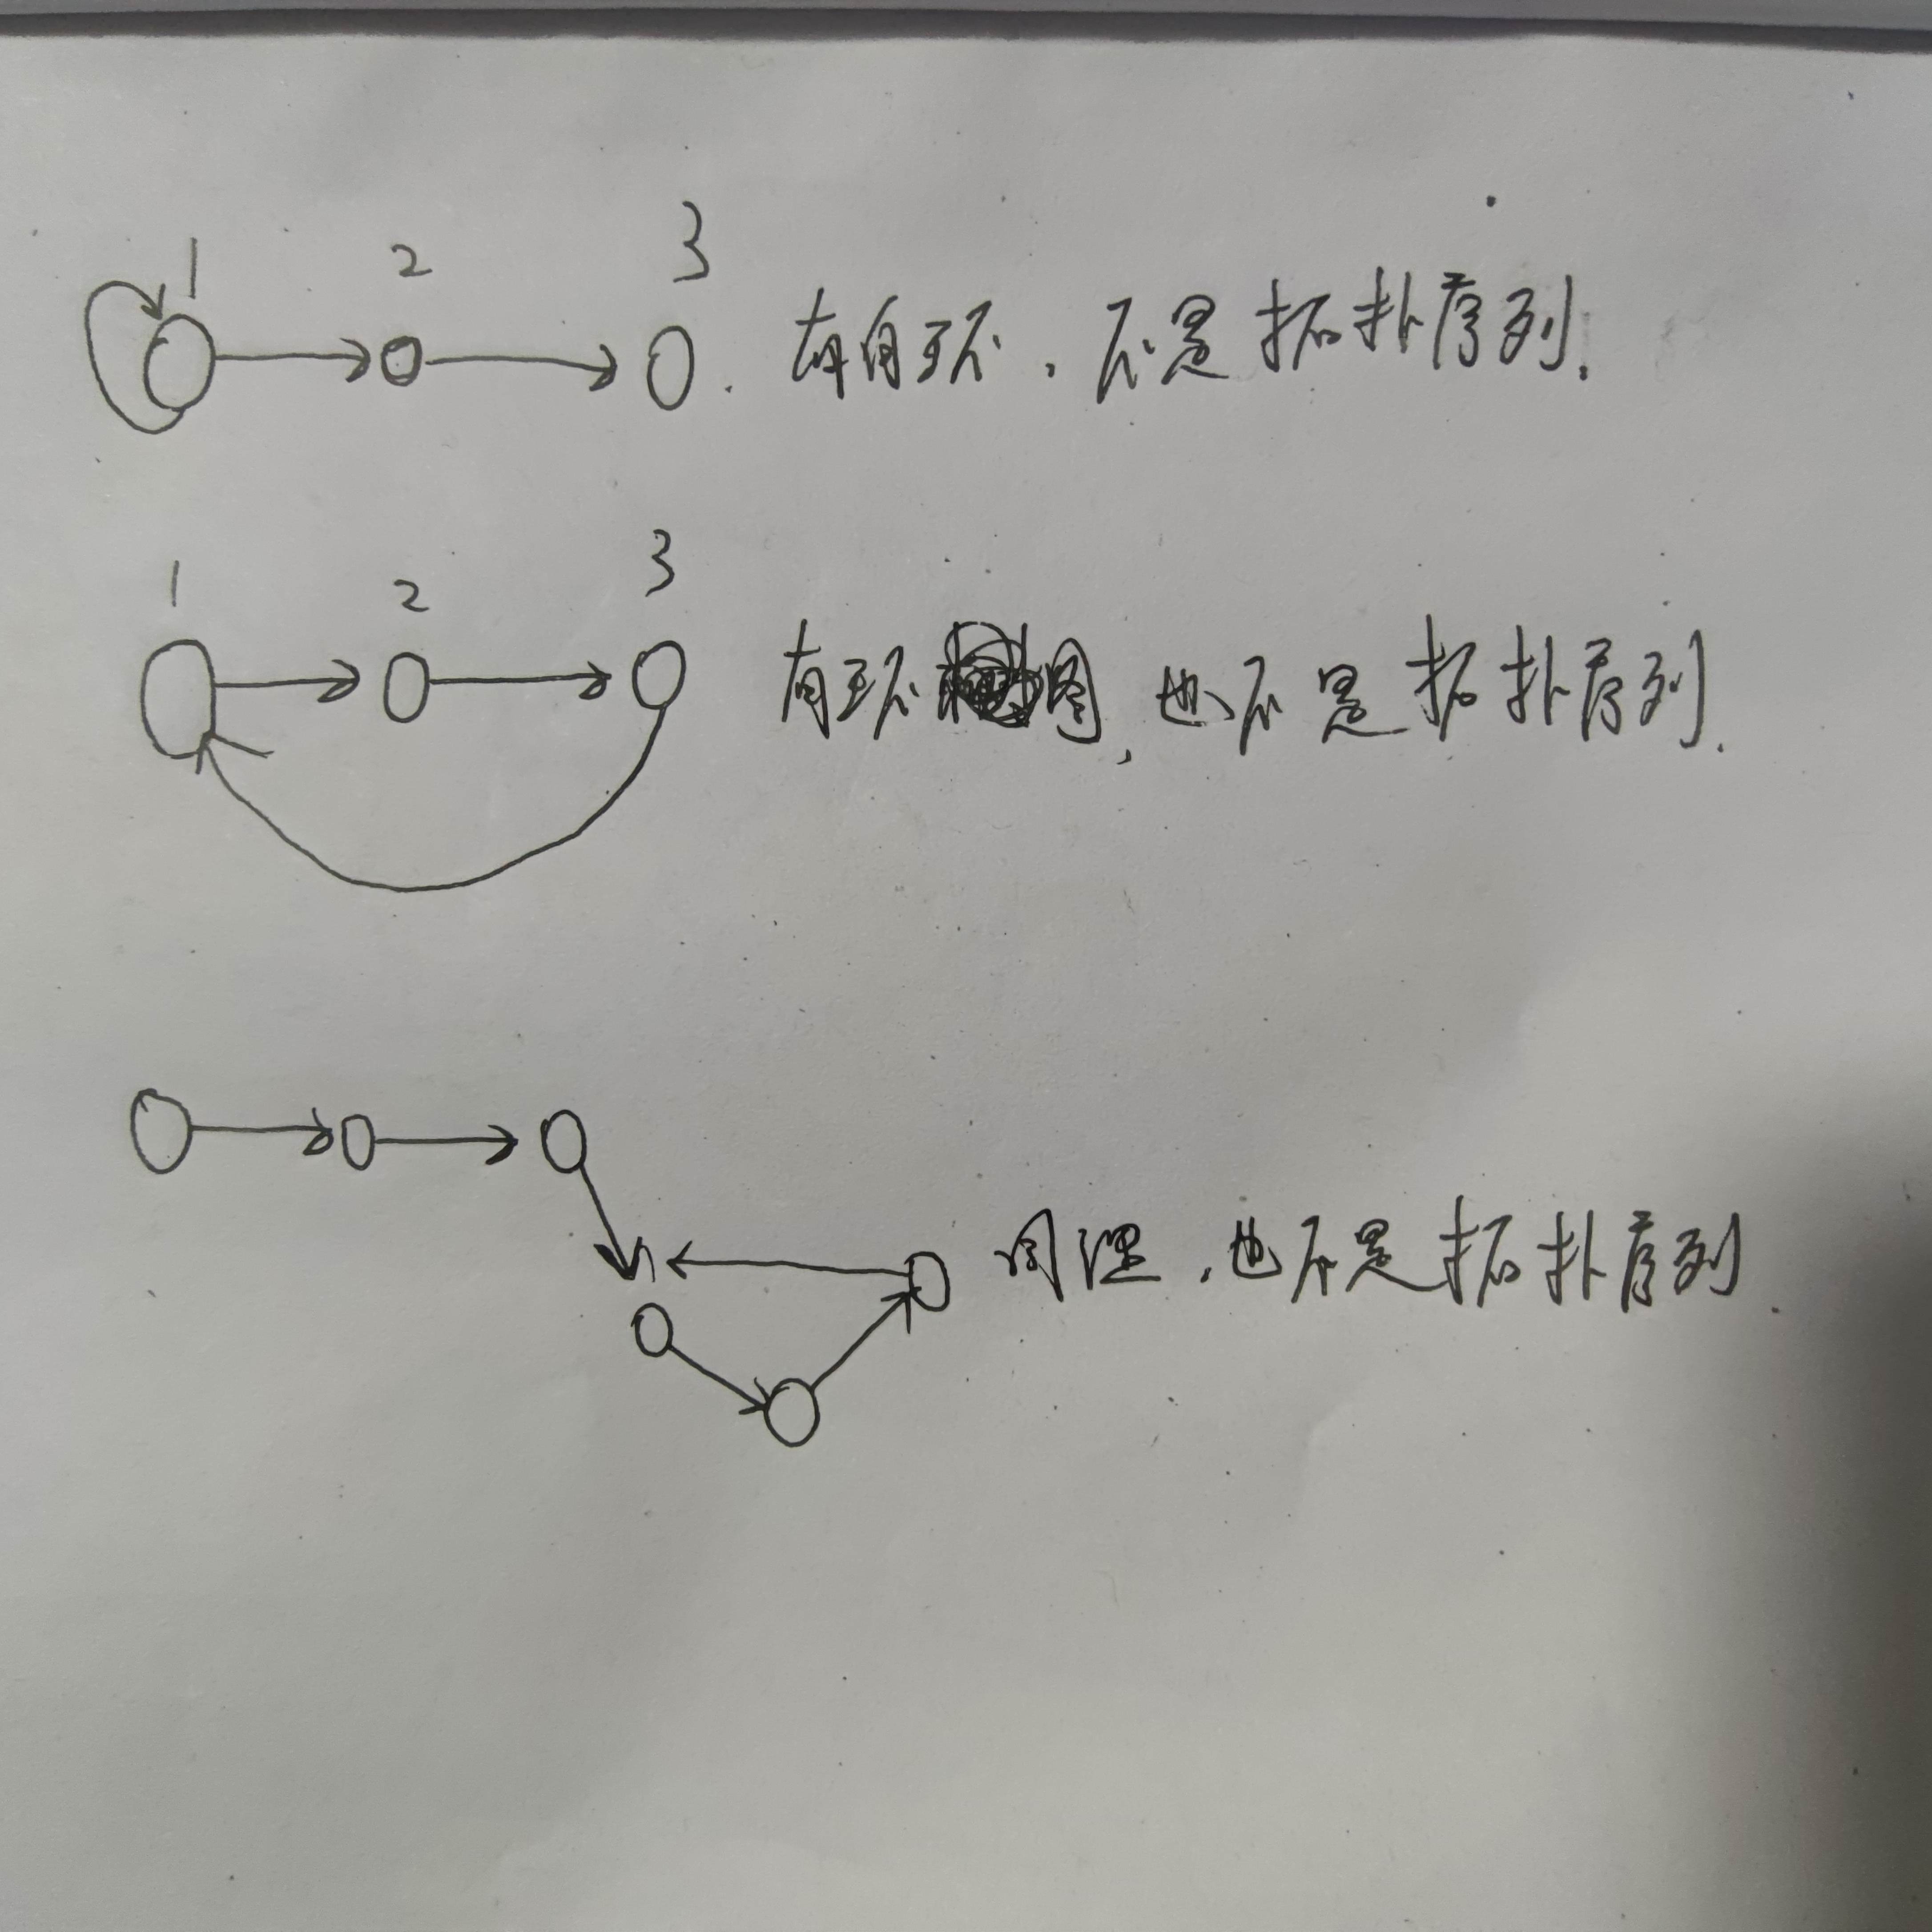 1 2 3
有自环，不是拓扑序列.
1 2 3
有环图，也不是拓扑序列.
同理，也不是拓扑序列.